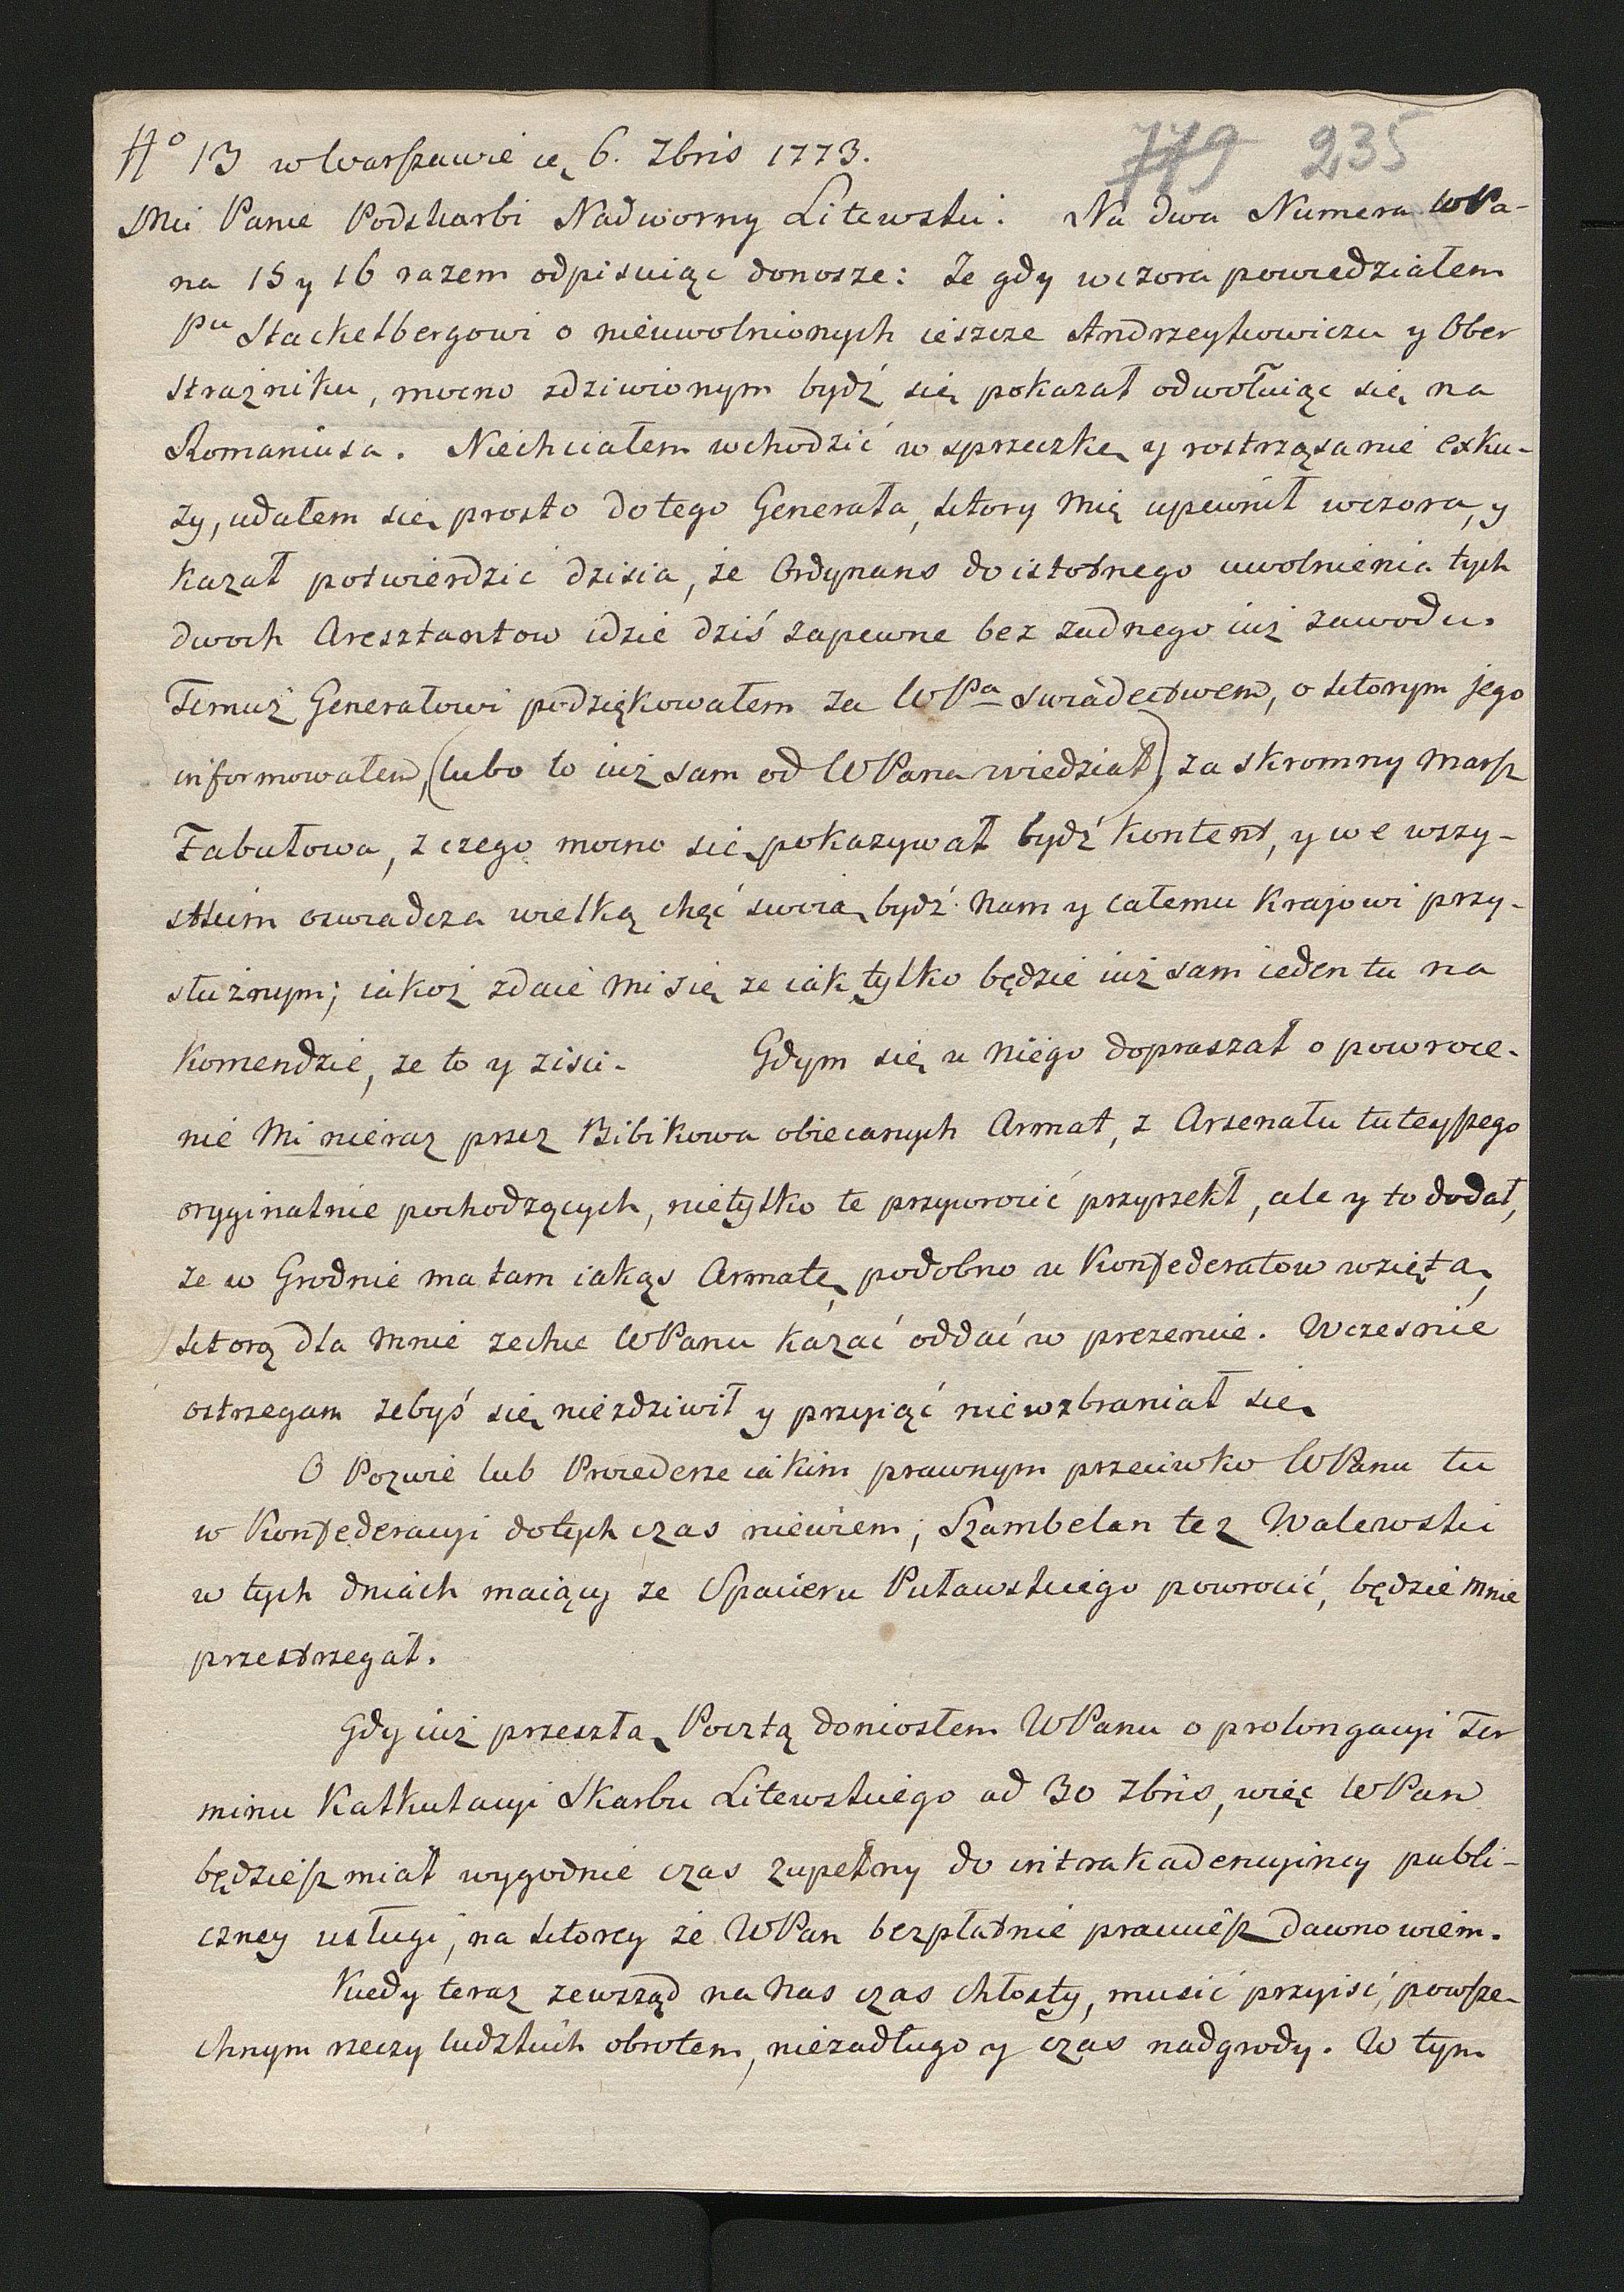 No 13 w Warszawie ię 6. 7bris 1773.
779 235
Mci Panie Podskarbi Nadworny Litewski. Na dwa Numera WPa-
na 15 y 16 razem odpisuiąc donosze: Ze gdy wczora powiedziałem
Pu Stackelbergowi o nieuwolnionych ieszcze Andrzeykowiczu y Ober
Strażniku, mocno zdziwionym bydź się pokazał odwołuiąc się na
Romaniusa. Niechciałem wchodzić w sprzeczkę y rostrząsanie exku-
zy, udałem się prosto do tego Generała, ktory mię upewnił wczora, y
kazał potwierdzić dzisia, że Ordynans do istotnego uwolnienia tych
dwoch Aresztantow idzie dziś zapewne bez żadnego iuż zawodu.
Temuż Generałowi podziękowałem za WPa swiadectwem, o ktorym jego
informowałem, (lubo to iuż sam od WPana wiedział) za skromny marsz
Fabułowa, z czego mocno się pokazywał bydź kontent, y we wszy-
stkim oswiadcza wielką chęć swoią bydź nam y całemu Krajowi przy-
służnym; iakoż zdaie mi się ze iak tylko będzie iuż sam ieden tu na
Komendzie, ze to y zisci. Gdym się u niego dopraszał o powroce-
nie mi nieraz przez Bibikowa obiecanych Armat, z Arsenału tuteyszego
oryginalnie pochodzących, nietylko te przywrocić przyrzekł, ale y to dodał,
ze w Grodnie ma tam iakąs Armatę, podobno u Konfederatow wziętą,
ktorą dla mnie zechce WPanu kazać oddać w prezencie. Wczesnie
ostrzegam żebyś się niezdziwił y przyiąć niewzbraniał się
O Pozwie lub Procederze iakim prawnym przeciwko WPanu tu
w Konfederacyi dotychczas niewiem; Szambelan tez Walewski
w tych dniach maiący ze Spacieru Puławskiego powrocić, będzie mnie
przestrzegał.
Gdy iuż przeszłą Pocztą doniosłem WPanu o prolongacyi Ter
minu Kalkulacyi Skarbu Litewskiego ad 30 7bris, więc WPan
będziesz miał wygodnie czas zupełny do intrakadencyiney publi-
czney usługi, na ktorey że WPan bezpłatnie pracuiesz dawno wiem.
Kiedy teraz zewsząd na nas czas chłosty, musić przyisć, powsze-
chnym rzeczy ludzkich obrotem, niezadługo y czas nadgrody. W tym